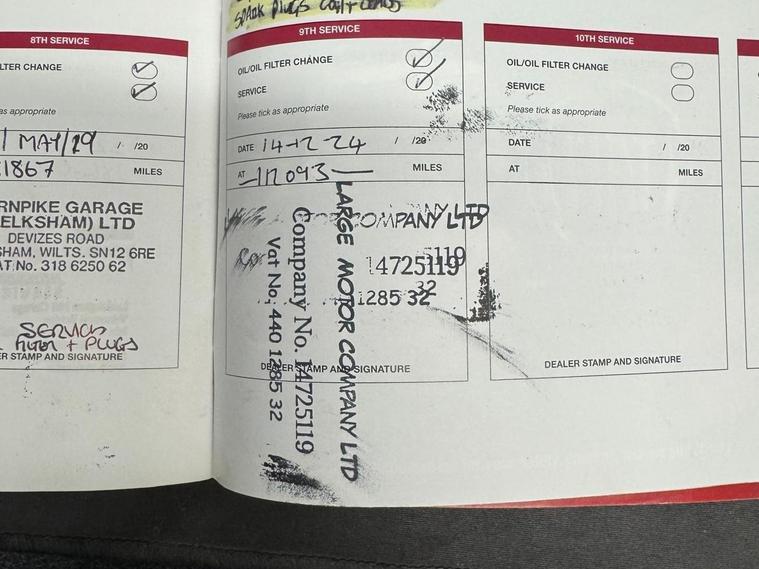 SPARK PLUGS COIL + LEADS
8TH SERVICE
LTER CHANGE
as appropriate
1 MAY/19 / /20
1867 MILES
RNPIKE GARAGE
ELKSHAM) LTD
DEVIZES ROAD
SHAM, WILTS. SN12 6RE
AT No. 318 6250 62
SERVICE
FILTER + PLUGS
ER STAMP AND SIGNATURE
9TH SERVICE
OIL/OIL FILTER CHANGE
SERVICE
Please tick as appropriate
DATE 14-12-24 / /20
AT 112093 MILES
COMPANY LTD
14725119
1285 32
LARGE MOTOR COMPANY LTD
Company No. 14725119
Vat No. 440 1285 32
DEALER STAMP AND SIGNATURE
10TH SERVICE
OIL/OIL FILTER CHANGE
SERVICE
Please tick as appropriate
DATE / /20
AT MILES
DEALER STAMP AND SIGNATURE